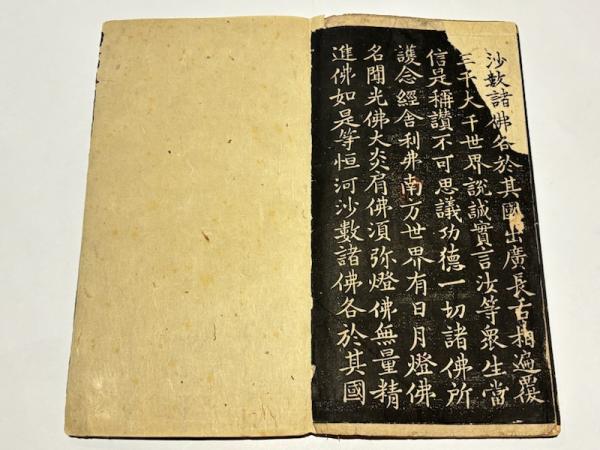 沙數諸佛各於其國出廣長舌相遍覆
三千大千世界説誠實言汝等衆生當
信是稱讃不可思議功德一切諸佛所
護念經舍利弗南方世界有日月燈佛
名聞光佛大炎肩佛湏弥燈佛無量精
進佛如是等恒河沙數諸佛各於其國